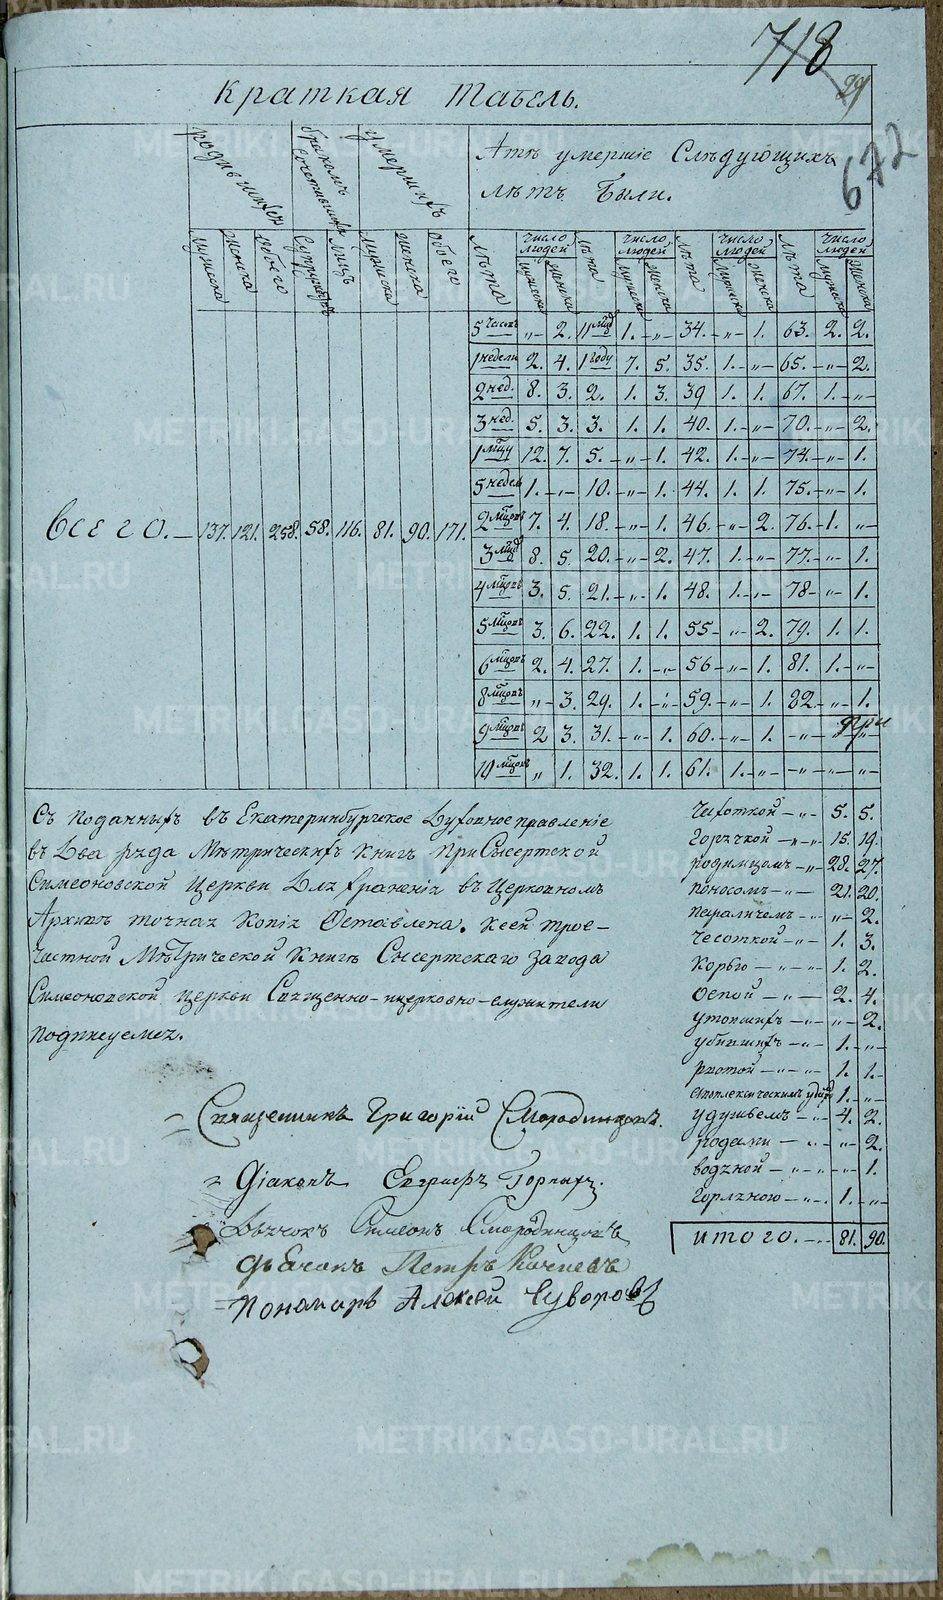 718
29
672
Краткая Табель.
родившихся
бракомъ сочетавшихся
умершихъ
Ате умершіе Слѣдующихъ
лѣтъ Были.
мужеска женска обоего Супружествъ лицъ мужеска женска обоего
Лѣта Число людей Лѣта Число людей Лѣта Число людей Лѣта Число людей
мужеска женска мужеска женска мужеска женска мужеска женска
5 часовъ „ 2. 11 мцъ 1. -„- 34. -„- 1. 63. 2. 2.
1 недели 2. 4. 1 году 7. 5. 35. 1. -„- 65. -„- 2.
2 нед. 8. 3. 2. 1. 3. 39 1. 1. 67. 1. -„-
3 нед. 5. 3. 3. 1. 1. 40. 1. -„- 70. -„- 2.
1 мцу 12. 7. 5. -„- 1. 42. 1. -„- 74. -„- 1.
5 недель 1. -„- 10. -„- 1. 44. 1. 1. 75. -„- 1.
Всего. - 137. 121. 258. 58. 116. 81. 90. 171.
2 мцовъ 7. 4. 18. -„- 1. 46. -„- 2. 76. 1. „-
3 мцъ 8. 5. 20. -„- 2. 47. 1. -„- 77. -„- 1.
4 мцовъ 3. 5. 21. -„- 1. 48. 1. -„- 78 -„- 1.
5 мцовъ 3. 6. 22. 1. 1. 55 -„- 2. 79. 1. 1.
6 мцовъ 2. 4. 27. 1. -„- 56 -„- 1. 81. 1. -„-
8 мцовъ „- 3. 29. 1. -„- 59. -„- 1. 82. -„- 1.
9 мцовъ 2 3. 31. -„- 1. 60. -„- 1. -„- „ „
10 мцовъ „ 1. 32. 1. 1. 61. 1. -„- -„- -„- „-
Съ поданныхъ въ Екатеринбургское Духовное правленіе
въ Два ряда Метрическихъ Книгъ При Сысертской
Симеоновской Церкви Для храненія въ Церковномъ
Архивѣ точная Копія Оставлена. Ксей трое-
частной Метрической Книгѣ Сысертскаго Завода
Симеоновской церкви Священно-ицерковно-служители
Подписуемся.
Чахоткой -„- 5. 5.
Горячкой -„- 15. 19.
родимцомъ -„ 28. 27.
поносомъ -„- 21. 20.
параличемъ -„- „- 2.
чесоткой -„- 1. 3.
Корью -„-„- 1. 2.
Оспой -„- 2. 4.
утопшихъ -„- „- 2.
убившихъ -„- 1. -„-
рвотой -„-„- 1. 1.
апоплексическимъ удар 1. -„-
удушьемъ -„- 4. 2.
родами -„- „- 2.
водяной -„-„- 1.
Горляною -„-„- 1. -„-
итого. -„- 81. 90.
Священникъ Григорій Смородинцовъ.
Діаконъ Евграфъ Горныхъ.
Дьячокъ Симеонъ Смородинцовъ
дьячокъ Петръ Кочневъ
Пономарь Алексѣй Суворовъ
METRIKI.GASO-URAL.RU